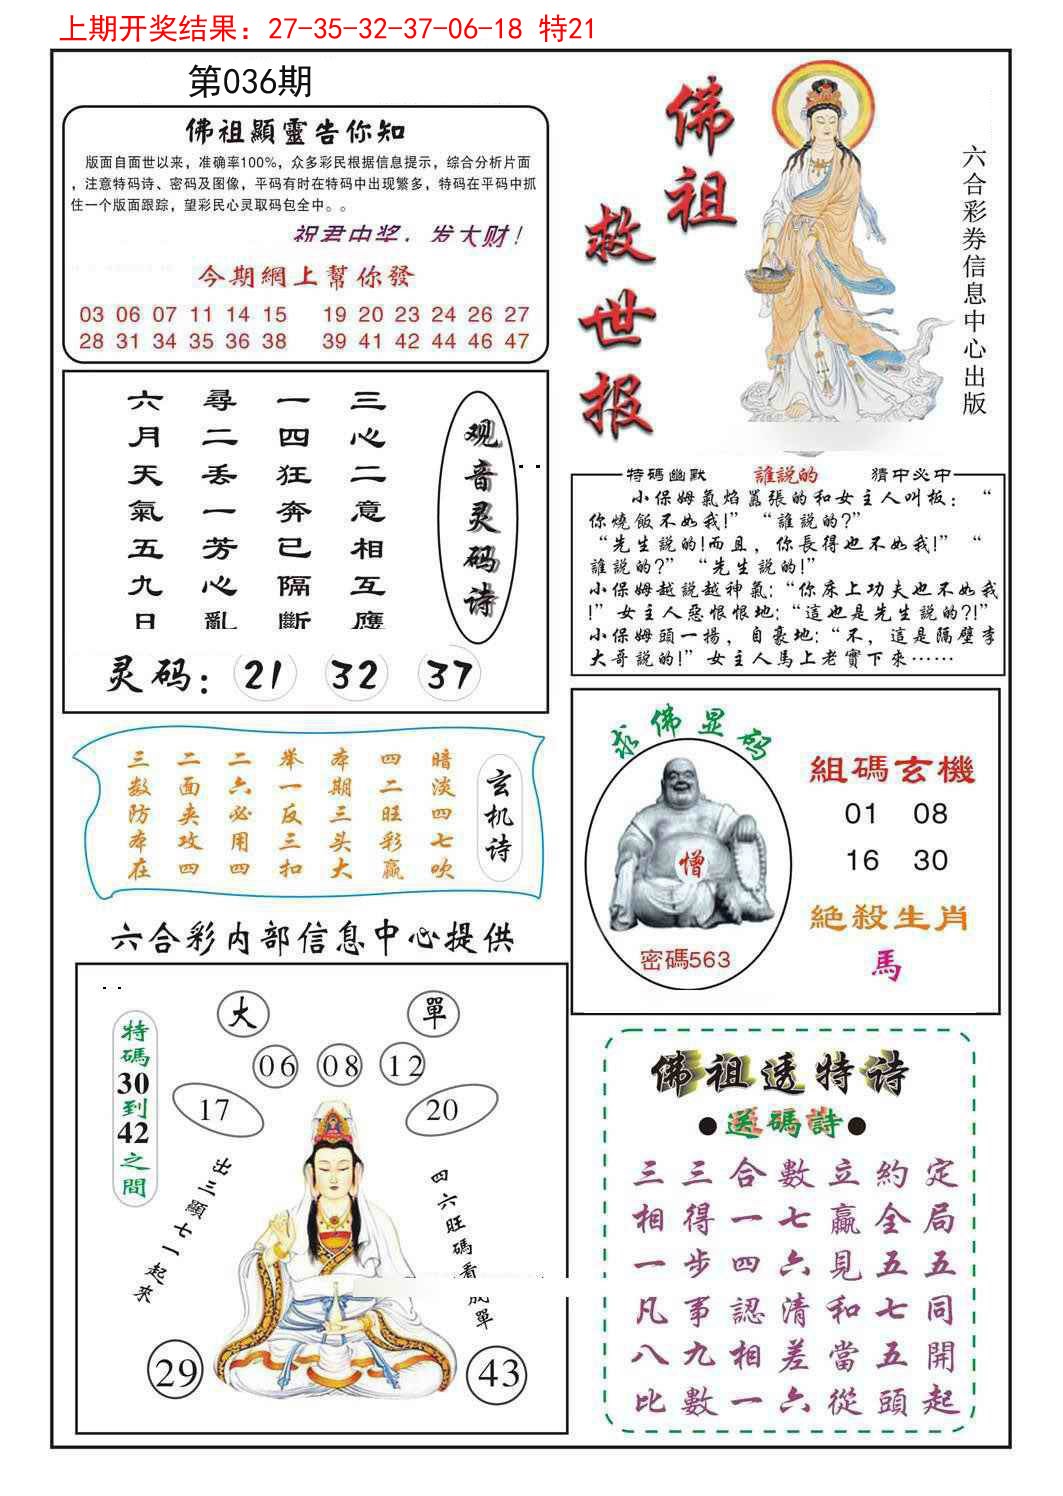 上期开奖结果：27-35-32-37-06-18 特21
第036期
佛祖顯靈告你知
版面自面世以来，准确率100%，众多彩民根据信息提示，综合分析片面
，注意特码诗、密码及图像，平码有时在特码中出现繁多，特码在平码中抓
住一个版面跟踪，望彩民心灵取码包全中。。
祝君中奖，发大财！
今期網上幫你發
03 06 07 11 14 15 19 20 23 24 26 27
28 31 34 35 36 38 39 41 42 44 46 47
佛祖救世报
六合彩券信息中心出版
三心二意相互應
一四狂奔已隔斷
尋二丢一芳心亂
六月天氣五九日
观音灵码诗
灵码：21 32 37
特碼幽默 誰說的 猜中必中
小保姆氣焰囂張的和女主人叫板：“
你燒飯不如我！”“誰說的?”
“先生說的！而且，你長得也不如我！”“
誰說的?”“先生說的！”
小保姆越說越神氣：“你床上功夫也不如我
！”女主人惡恨恨地：“這也是先生說的?！”
小保姆頭一揚，自豪地：“不，這是隔壁李
大哥說的！”女主人馬上老實下來……
玄机诗
暗淡四七吹
四二旺彩赢
本期三头大
举一反三扣
二六必用四
二面夹攻四
三数防本在
求佛显码
憎
密碼563
組碼玄機
01 08
16 30
絕殺生肖
馬
六合彩内部信息中心提供
特碼30到42之間
大 單
06 08 12
17 20
出三顯七一起來
四六旺碼看成單
29 43
佛祖透特诗
●送碼詩●
三三合數立約定
相得一七赢全局
一步四六見五五
凡事認清和七同
八九相差當五開
比數一六從頭起